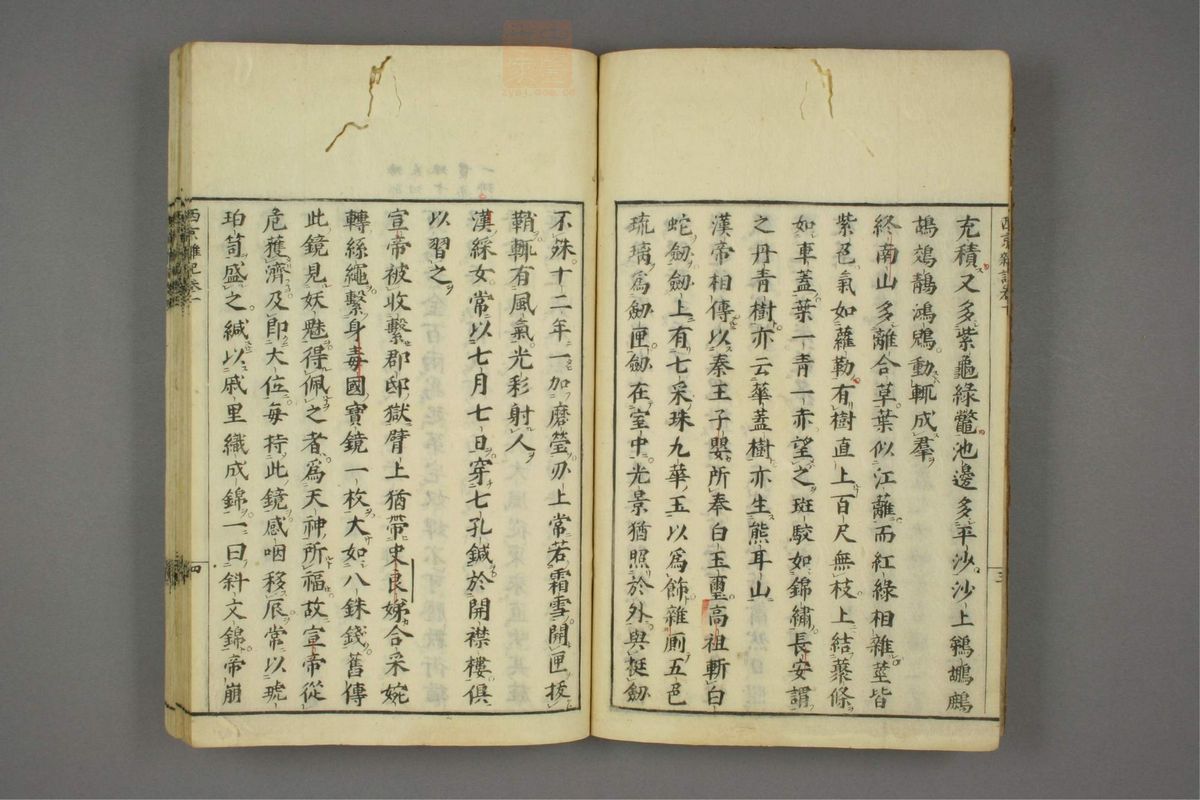 充積又多紫龜綠鼈池邊多平沙沙上鵜鶘鷓
鴣鵁鶄鴻鶂動輒成羣
終南山多離合草葉似江蘺而紅綠相雜莖皆
紫色氣如蘿勒有樹直上百尺無枝上結藂條
如車蓋葉一青一赤望之斑駮如錦繡長安謂
之丹青樹亦云華蓋樹亦生熊耳山
漢帝相傳以秦王子嬰所奉白玉璽高祖斬白
蛇劒劒上有七采珠九華玉以爲飾雜厠五色
琉璃爲劒匣劒在室中光景猶照於外與挺劒
三
不殊十二年一加磨瑩刃上常若霜雪開匣拔
鞘輒有風氣光彩射人
漢綵女常以七月七日穿七孔鍼於開襟樓俱
以習之
宣帝被收繫郡邸獄臂上猶帶史良娣合采婉
轉絲繩繫身毒國寶鏡一枚大如八銖錢舊傳
此鏡見妖魅得佩之者爲天神所福故宣帝從
危獲濟及即大位每持此鏡感咽移辰常以琥
珀笥盛之緘以戚里織成錦一曰斜文錦帝崩
西京雜記卷一
四